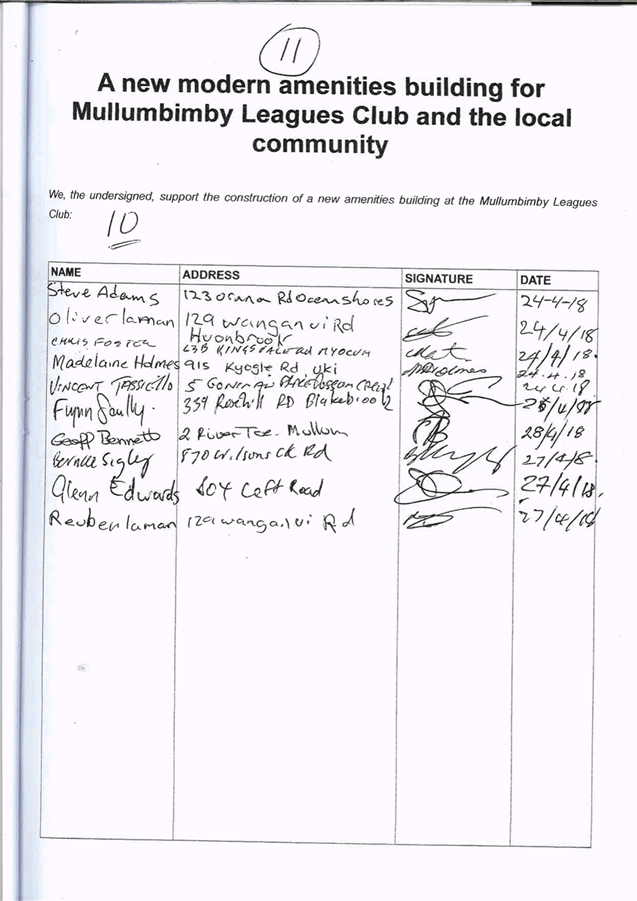 11
A new modern amenities building for
Mullumbimby Leagues Club and the local
community
We, the undersigned, support the construction of a new amenities building at the Mullumbimby Leagues
Club:
10
NAME ADDRESS SIGNATURE DATE
Steve Adams 123 Rd Ocean shores 24-4-18
Oliver laman 129 wanganui Rd 24/4/18
Huonbrook
CHRIS FOSTER MYOCUM 24/4/18.
Madelaine Holmes 915 Kyogle Rd, Uki 24.4.18
VINCENT 5 24.4.18
Flynn 339 Rosehill RD Blakebrook
Geoff Bennett 2 River Tce. Mullum 28/4/18
Bernice Sigley 870 Wilsons Ck Rd
Glenn Edwards Left Road 27/4/18.
Reuben laman 129 wanganui Rd